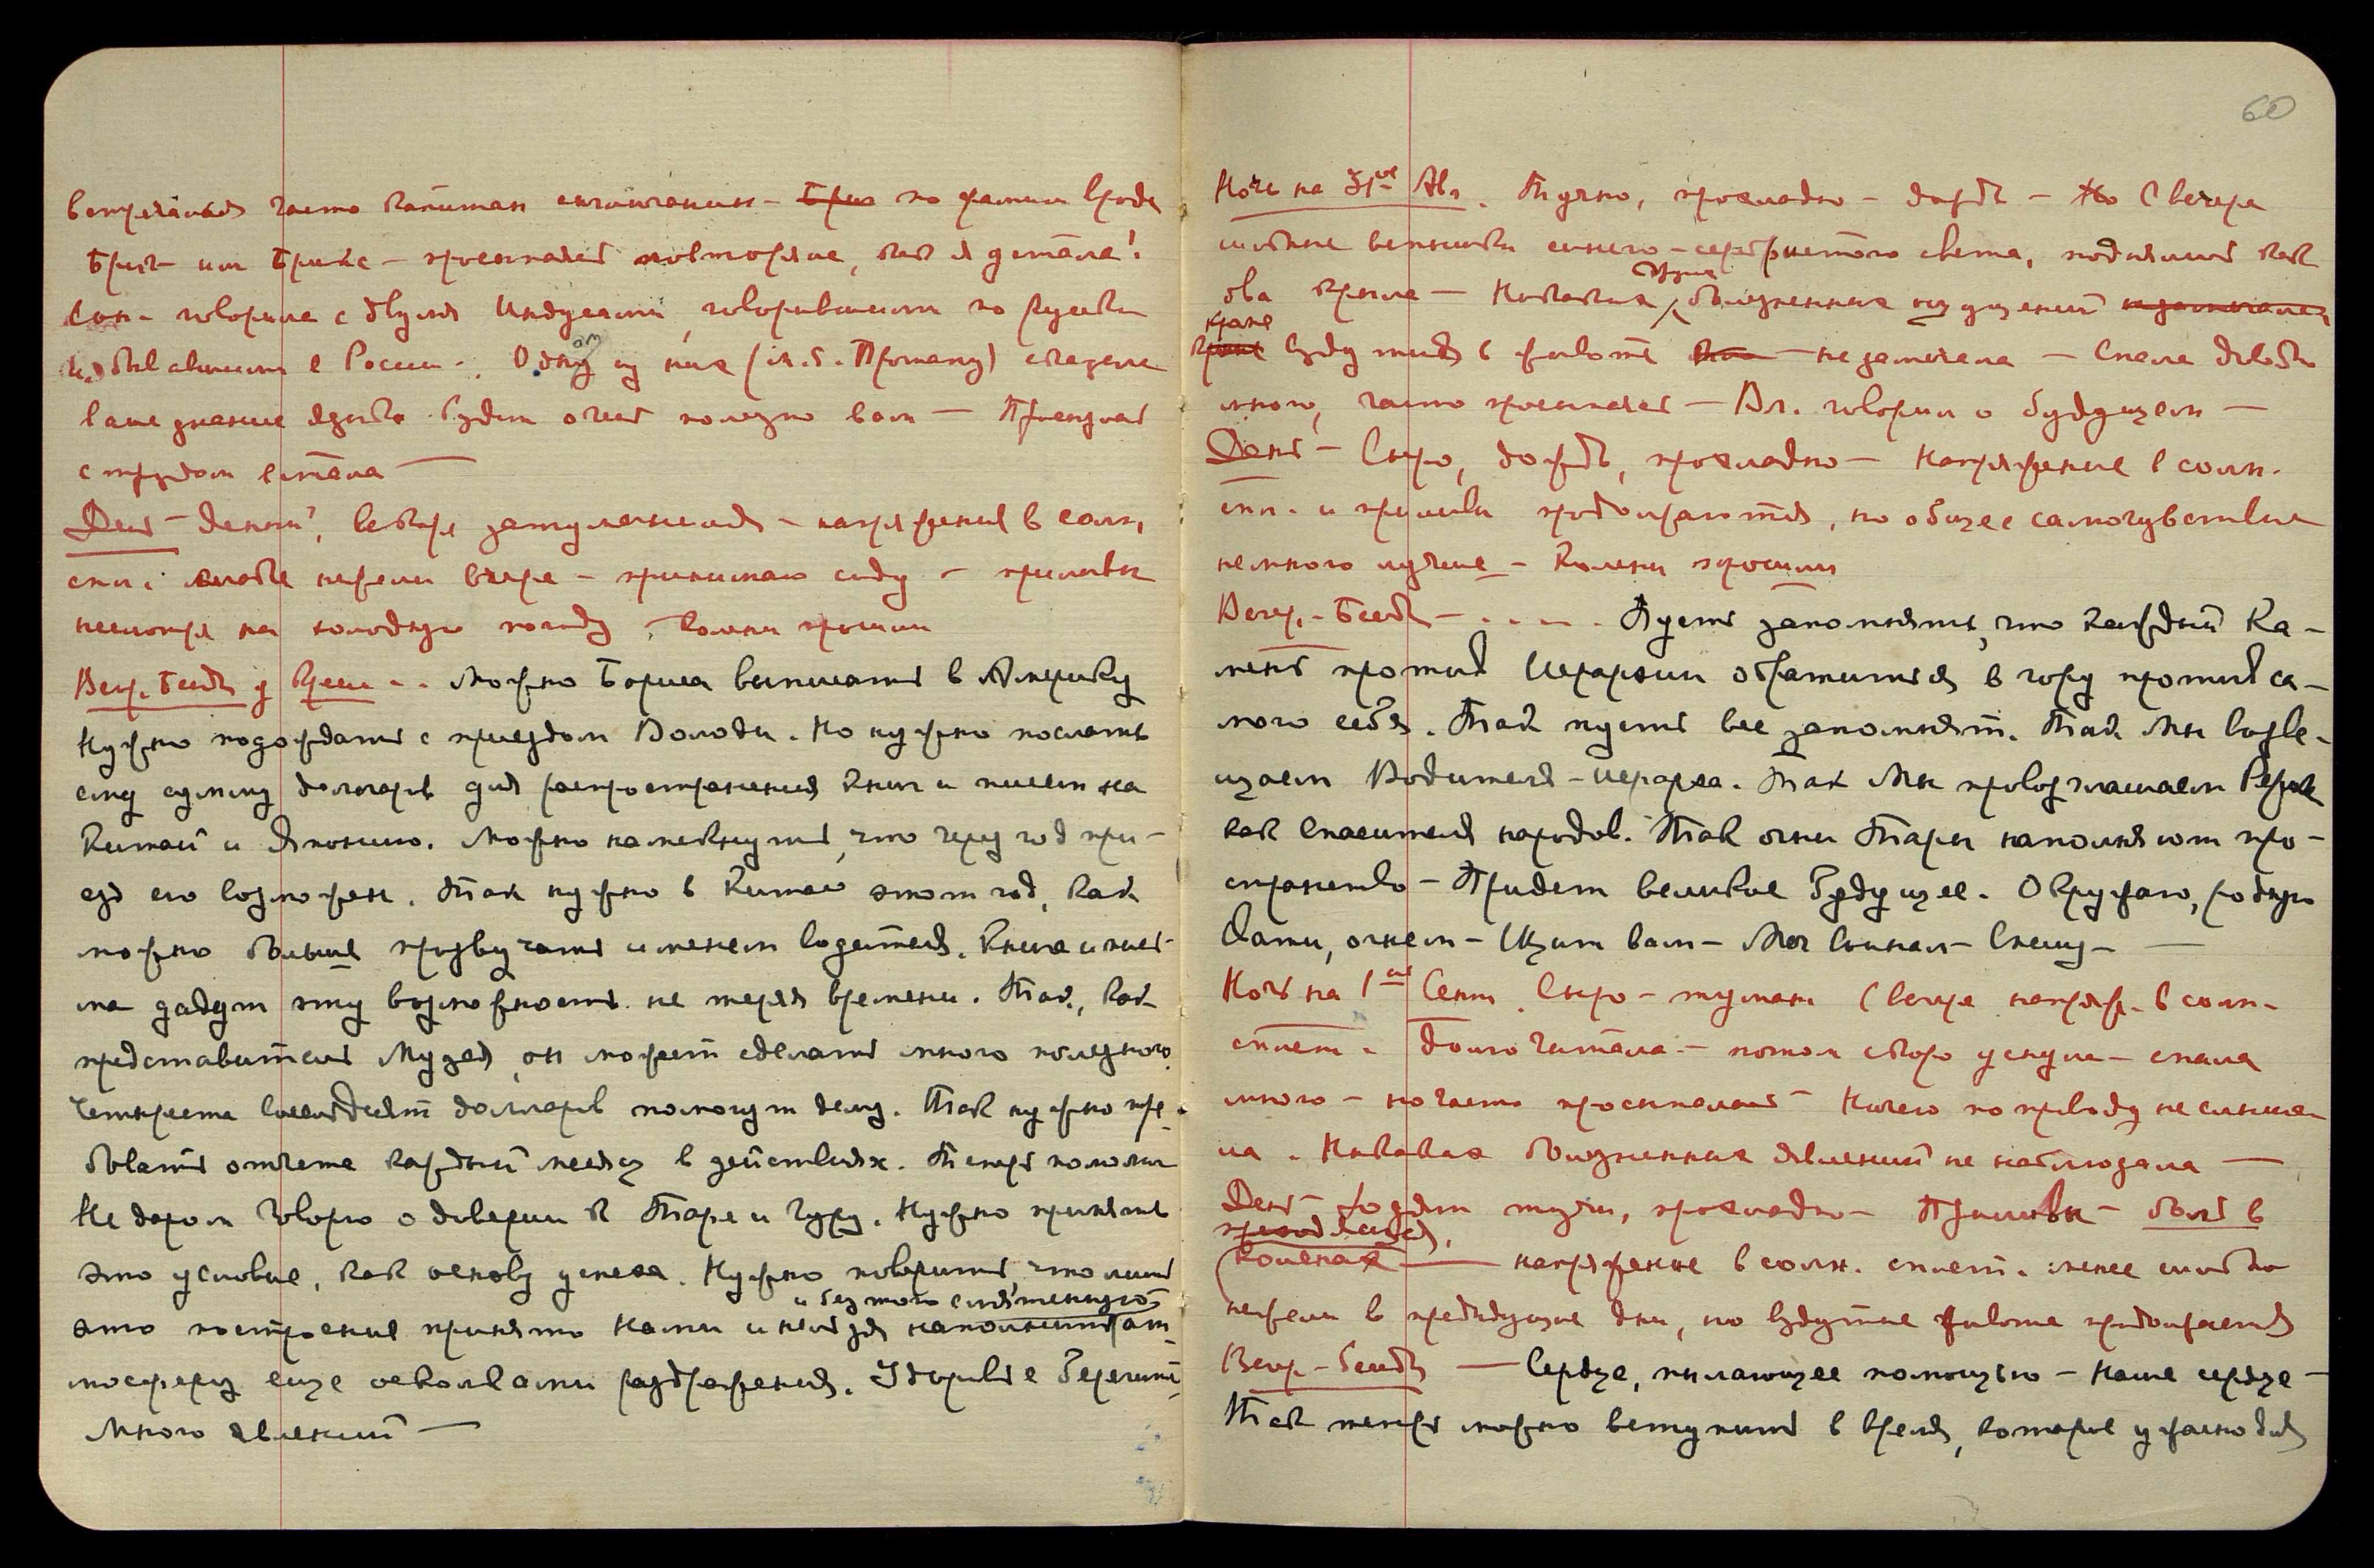 встречался часто капитан англичанин – по фамилии вроде
Брик или Брикс – просыпаясь повторяла, как я устала!
Сон – говорила с двумя Индусами, говорившими по русски
и бывавшими в России. Одному из них (м.б. ) сказала
ваше знание языка будет очень полезно вам – Проснулась
с трудом встала —
День – Ясный, вскоре затуманилось – напряжения в солн.
спл. слабее нежели вчера – принимаю соду – приливы
несмотря на холодную погоду, колени прошли
Веч. Бесед. у .. Можно Бориса выписать в Америку
Нужно подождать с приездом Володи. Но нужно послать
ему сумму долларов для распространения книг и писем на
Китай и Японию. Можно намекнуть, что через год при-
езд его возможен. Так нужно в Китае этот год, как
можно больше прозвучать именем водителя. Книга и пись-
ма дадут эту возможность не теряя времени. Так, как
представитель Музея, он может сделать много полезного.
Четыреста восемьдесят долларов помогут делу. Так нужно тре-
бовать отчета каждый месяц в действиях. Теперь помолчи
Не даром говорю о доверии к Таре и Гуру. Нужно принять
это условие, как основу успеха. Нужно поверить, что лишь
и без того смятенную
это построение принято Нами и нельзя наполнить ат-
мосферу еще осколками раздражения. Здоровье берегите
Много явлений —
60
Ночь на 31ое Авг. Тучно, прохладно – дождь – С вечера
сильные вспышки синего – серебристого света, поднялись как
два крыла – Никаких других болезненных ощущений
кроме вздутия в животе – не замечала – Спала довольно
много, часто просыпаясь – Вл. говорил о будущем —
День – Сыро, дождь, прохладно – Напряжение в солн.
спл. и приливы продолжаются, но общее самочувствие
немного лучше – Колени прошли
Веч. – Бесед. – . . – . Пусть запомнят, что каждый Ка-
мень против Иерархии обратится в гору против са-
мого себя. Так пусть все запомнят. Так Мы возве-
щаем Водителя – Иерарха. Так Мы провозглашаем
как Спасителя народов. Так огни Тары наполняют про-
странство – Придет великое Будущее. Окружаю, родную
огнем – Щит вам – Спешу – —
Ночь на 1ое Сент. Сыро – туман С вечера напряж. в солн.
сплет. Долго читала – потом скоро уснула – спала
много – но часто просыпалась – Ничего по проводу не слыша-
ла. Никаких болезненных явлений не наблюдала —
День – ходят тучи, прохладно – Приливы – боль в
преходящая,
коленах —— напряжение в солн. сплет. менее сильно
нежели в предыдущие дни, но вздутие живота продолжается
Веч. – Бесед. — Сердце, пылающее помощью – Наше сердце –
Так теперь можно вступить в время, которое